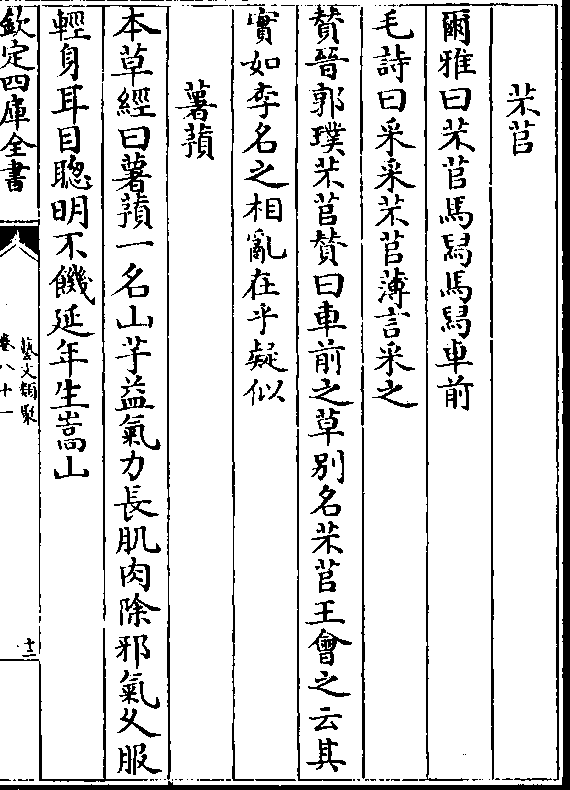 芣苢
爾雅曰芣苢馬舄馬舄車前
毛詩曰采采芣苢薄言采之
贊晉郭璞芣苢贊曰車前之草别名芣苢王會之云其
實如李名之相亂在乎疑似
薯蕷
本草經曰薯蕷一名山芋益氣力長肌肉除邪氣久服
輕身耳目聰明不饑延年生嵩山
欽定四庫全書
藝文類聚
卷八十一
十二